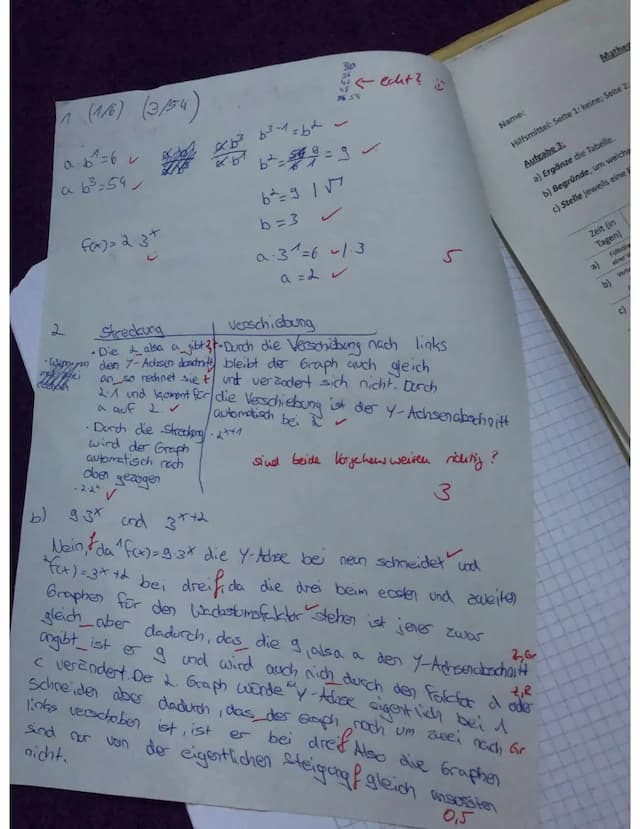 1 (1/6) (3/54)
← echt? :)
a·b¹=6 ✓
a b³=54 ✓
b³⁻¹=b² ✓
b²= = 9 ✓
b²=9 |√
b=3 ✓
f(x)=2·3ˣ ✓
a·3¹=6 ✓ |:3
a=2 ✓
5
2 Streckung
Verschiebung
· Die 2 also a gibt
den Y-Achsenabschnitt
an so rechnet sie
2·1 und kommt für
a auf 2 ✓
· Durch die Streckung
wird der Graph
automatisch nach
oben gezogen
· 2·2ˣ ✓
· Durch die Verschiebung nach links
bleibt der Graph auch gleich
und verändert sich nicht. Durch
die Verschiebung ist der Y-Achsenabschnitt
automatisch bei 2 ✓
· 2ˣ⁺¹
sind beide Vorgehensweisen richtig?
3
b) 9·3ˣ und 3ˣ⁺²
Nein, f da ¹f(x)=9·3ˣ die Y-Achse bei neun schneidet ✓ und
²f(x)=3ˣ+2 bei drei f, da die drei beim ersten und zweiten
Graphen für den Wachstumsfaktor ✓ stehen ist jener zwar
gleich aber dadurch, das die 9, also a den Y-Achsenabschnitt Z, Gr
angibt ist er 9 und wird auch nich durch den Faktor d oder Z, R
c verändert. Der 2. Graph würde Y-Achse eigentlich bei 1
schneiden aber dadurch, das der Graph noch um zwei nach Gr
links verschoben ist, ist er bei drei f Also die Graphen
sind nur von der eigentlichen Steigung f gleich ansonsten
nicht.
0,5
Mathe
Name:
Hilfsmittel: Seite 1: keine; Seite 2:
Aufgabe 3:
a) Ergänze die Tabelle.
b) Begründe, um welche
c) Stelle jeweils eine
Zeit (in
Tagen)
a)
b)
c)